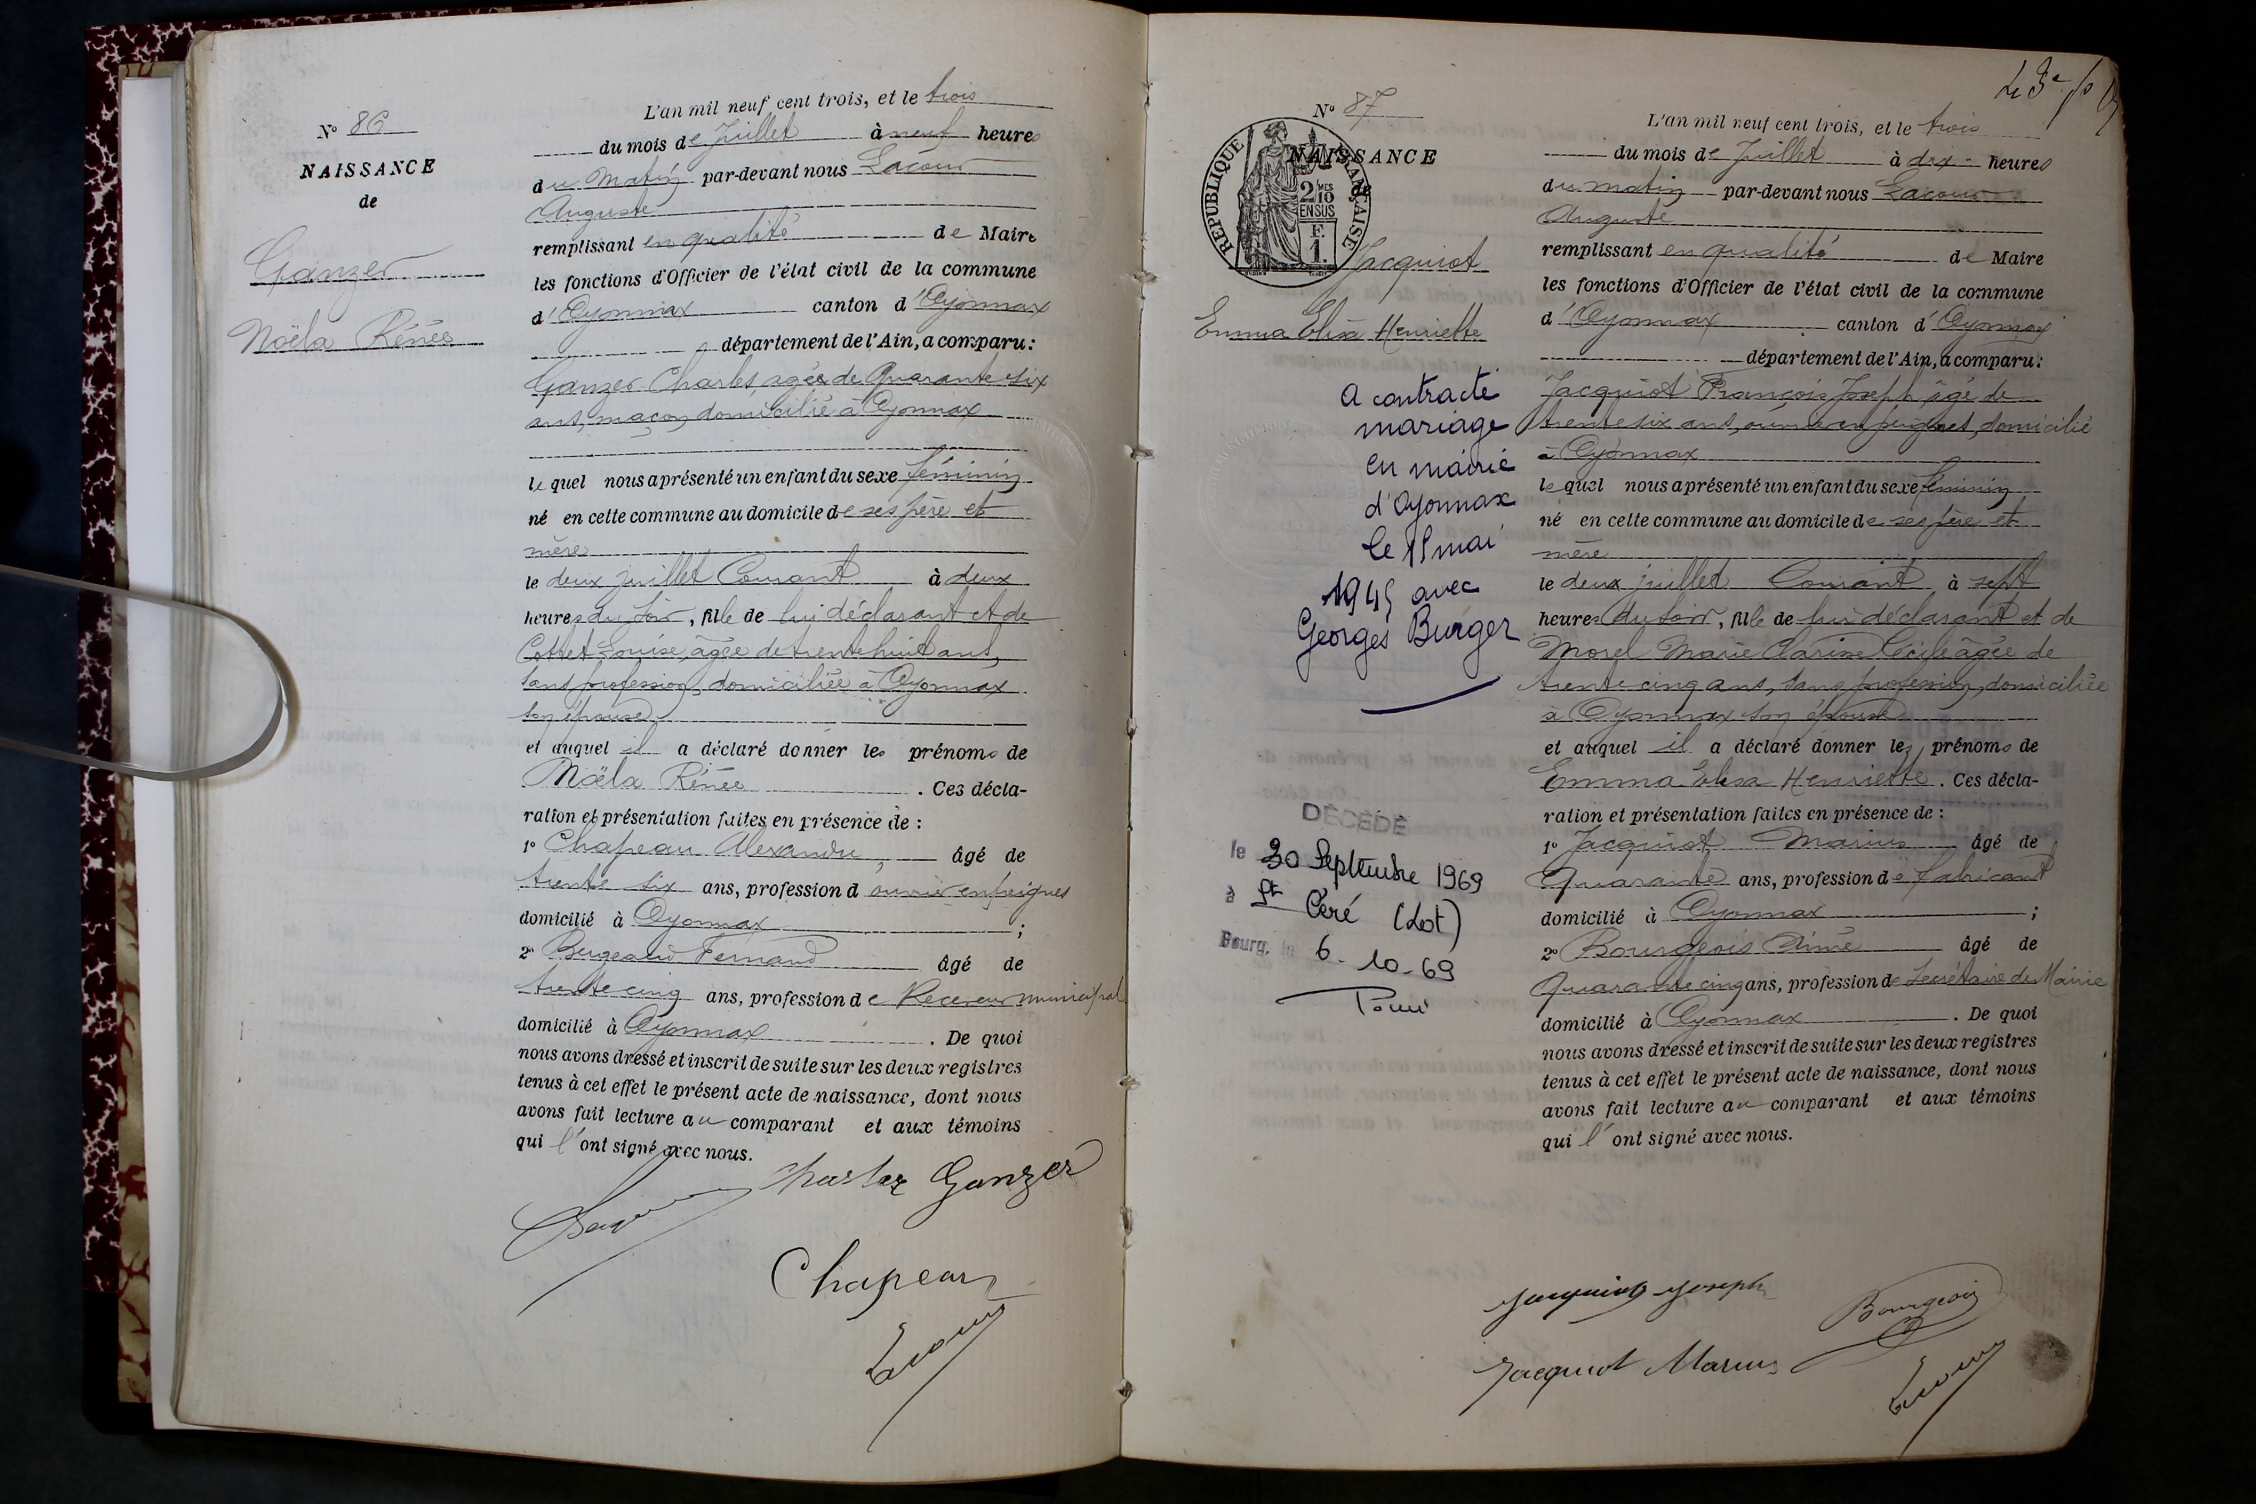 N° 86
NAISSANCE
de
Ganzer
Noëla Rénée
L'an mil neuf cent trois, et le trois
du mois de Juillet à neuf heures
du Matin par-devant nous Lacour
Auguste
remplissant en qualité de Maire
les fonctions d'Officier de l'état civil de la commune
d'Oyonnax canton d'Oyonnax
département de l'Ain, a comparu :
Ganzer Charles, agée de Quarante six
ans, maçon, domicilié à Oyonnax
le quel nous a présenté un enfant du sexe féminin
né en cette commune au domicile de ses père et
mère
le deux juillet Courant à deux
heures du soir, fille de lui déclarant et de
Cottet Louise, âgée de trente huit ans,
sans profession, domiciliée à Oyonnax
son épouse
et auquel il a déclaré donner les prénoms de
Noëla Rénée . Ces décla-
ration et présentation faites en présence de :
1° Chapeau Alexandre, âgé de
trente six ans, profession d ouvrier en peignes
domicilié à Oyonnax ;
2° Bergeaud Fernand âgé de
trente cinq ans, profession de Receveur municipal
domicilié à Oyonnax . De quoi
nous avons dressé et inscrit de suite sur les deux registres
tenus à cet effet le présent acte de naissance, dont nous
avons fait lecture au comparant et aux témoins
qui l'ont signé avec nous.
Charles Ganzer
Chapeau
Lacour
43e
N° 87
NAISSANCE
de
RÉPUBLIQUE FRANÇAISE
2/10 MES
EN SUS
F.
1.
Jacquiot
Emma Elisa Henriette
a contracté
mariage
en mairie
d'Oyonnax
le 15 mai
1945 avec
Georges Burger
DÉCÉDÉ
le 30 Septembre 1969
à St Céré (Lot)
Bourg, le 6-10-69
L'an mil neuf cent trois, et le trois
du mois de Juillet à dix heures
du matin par-devant nous Lacour
Auguste
remplissant en qualité de Maire
les fonctions d'Officier de l'état civil de la commune
d'Oyonnax canton d'Oyonnax
département de l'Ain, a comparu :
Jacquiot François Joseph âgé de
trente six ans, ouvrier en peignes, domicilié
à Oyonnax
le quel nous a présenté un enfant du sexe féminin
né en cette commune au domicile de ses père et
mère
le deux juillet Courant à sept
heures du soir, fille de lui déclarant et de
Morel Marie Clarine Cécile âgée de
trente cinq ans, sans profession, domiciliée
à Oyonnax son épouse
et auquel il a déclaré donner les prénoms de
Emma Elisa Henriette . Ces décla-
ration et présentation faites en présence de :
1° Jacquiot Marius âgé de
Quarante ans, profession de fabricant
domicilié à Oyonnax ;
2° Bourgeois Aimé âgé de
Quarante cinq ans, profession de Secrétaire de Mairie
domicilié à Oyonnax . De quoi
nous avons dressé et inscrit de suite sur les deux registres
tenus à cet effet le présent acte de naissance, dont nous
avons fait lecture au comparant et aux témoins
qui l'ont signé avec nous.
Jacquiot Joseph
Bourgeois
Jacquiot Marius
Lacour